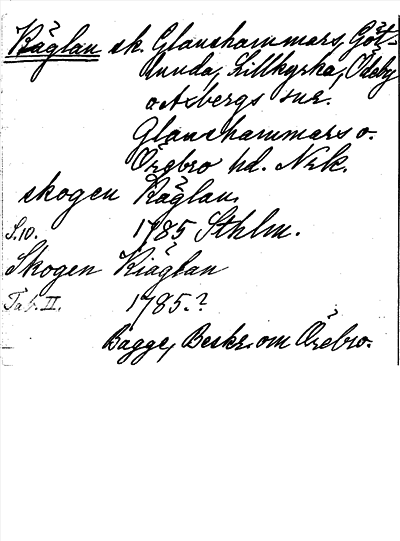 Käglan sk. Glanshammars, Göt-
lunda, Lillkyrka, Ödeby
o Axbergs snr.
Glanshammars o.
Örebro hd. Nrk.
skogen Käglan.
S. 10. 1785 Sthlm.
Skogen Kiäglan
Tab. II. 1785.?
Bagge, Beskr. om Örebro.